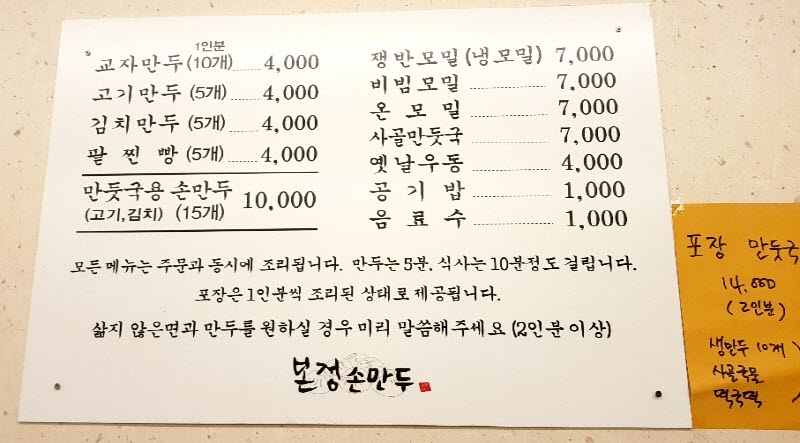 1인분
교자만두(10개) 4,000
고기만두 (5개) 4,000
김치만두 (5개) 4,000
팥찐빵 (5개) 4,000
만둣국용 손만두 10,000
(고기,김치) (15개)
쟁반모밀(냉모밀) 7,000
비빔모밀 7,000
온모밀 7,000
사골만둣국 7,000
옛날우동 4,000
공기밥 1,000
음료수 1,000
모든 메뉴는 주문과 동시에 조리됩니다. 만두는 5분, 식사는 10분정도 걸립니다.
포장은 1인분씩 조리된 상태로 제공됩니다.
삶지 않은면과 만두를 원하실 경우 미리 말씀해주세요 (2인분 이상)
본정손만두
포장 만둣국
14,000
(2인분)
생만두 10개
사골국물
떡국떡